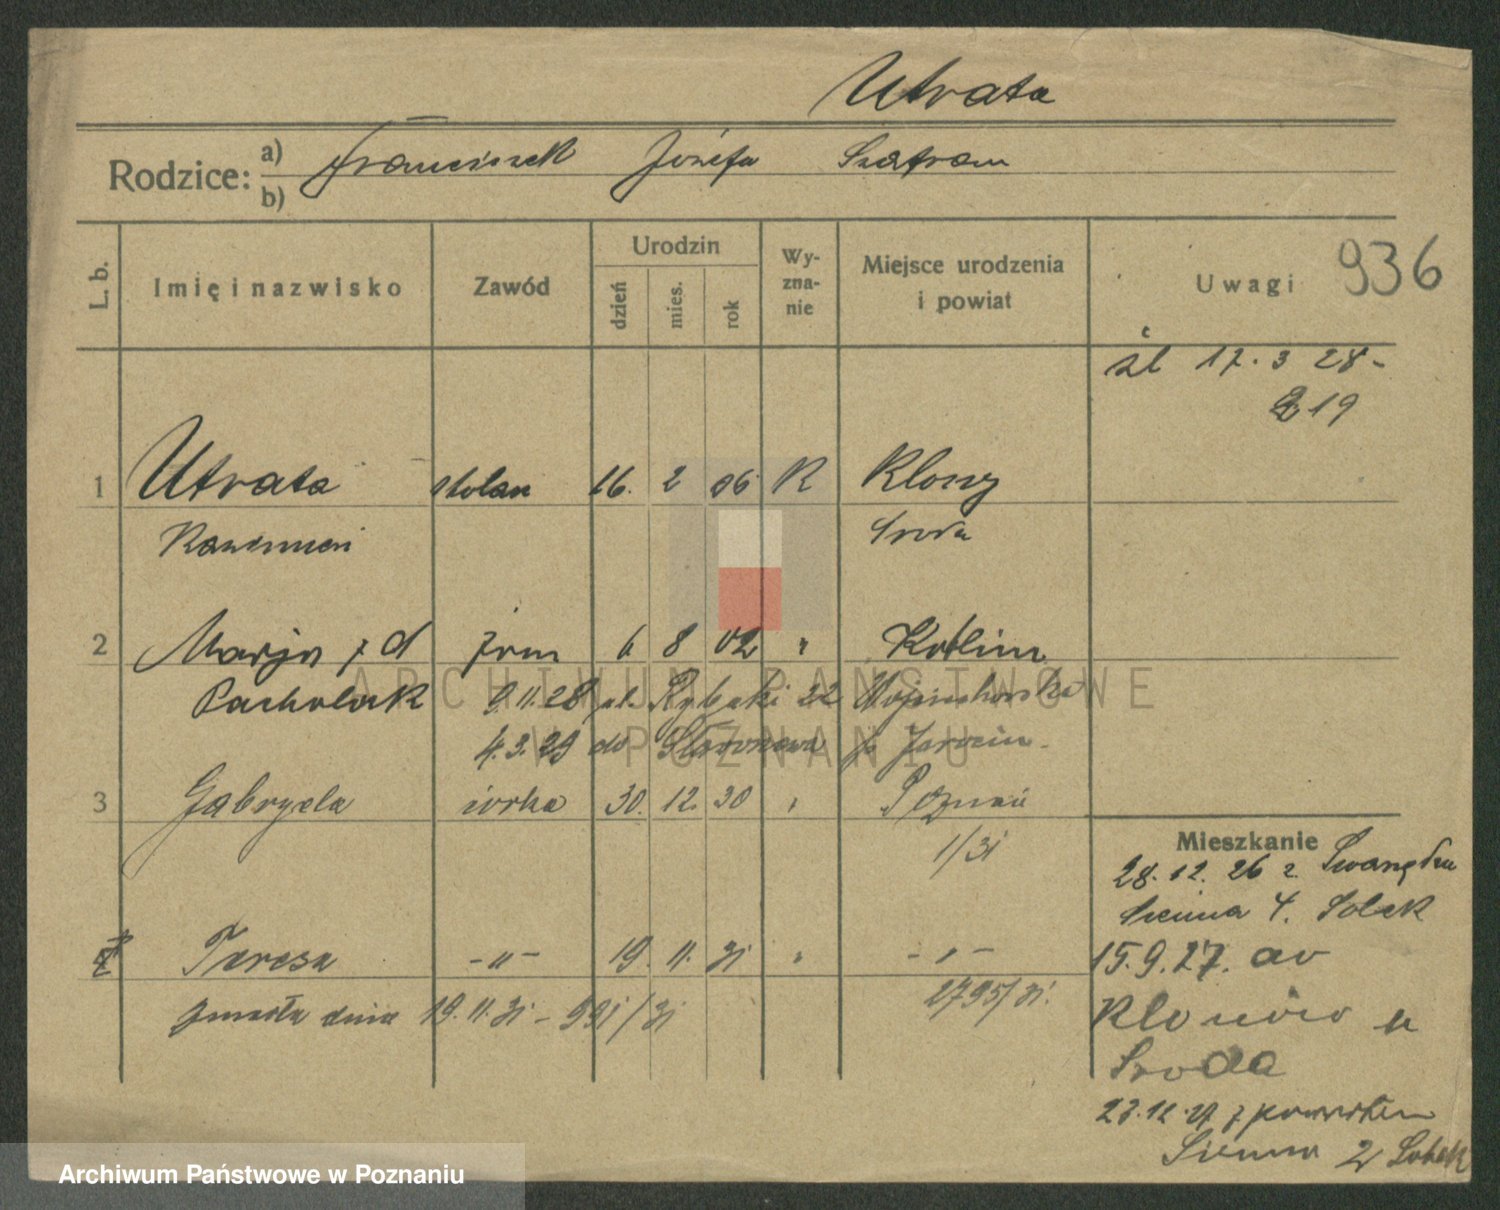 Utrata
Rodzice: a) Franciszek Józefa Szafran
b)
L. b.
Imię i nazwisko
Zawód
Urodzin
dzień
mies.
rok
Wy-
zna-
nie
Miejsce urodzenia
i powiat
Uwagi
936
śl 17.3 28-
219
1 Utrata stolarz 16. 2 06 K Klony
Kazimierz Środa
2 Marja z d żona 6 8 02 " Kotlin
Pacholak 9.11.28 ul. Rybaki 22
4.3.29 do p Jarocin
3 Gabryela córka 30. 12. 30 " Poznań
1/31
Mieszkanie
28.12.26 z Swarzędza
Sienna 4. Solak
4 Teresa -"- 19. 11. 31 " -"-
15.9.27. do
zmarła dnia 19.11.31 - 991/31
2795/31.
Środa
23.12.27 z powrotem
Sienna 2
ARCHIWUM PAŃSTWOWE
W POZNANIU
Archiwum Państwowe w Poznaniu